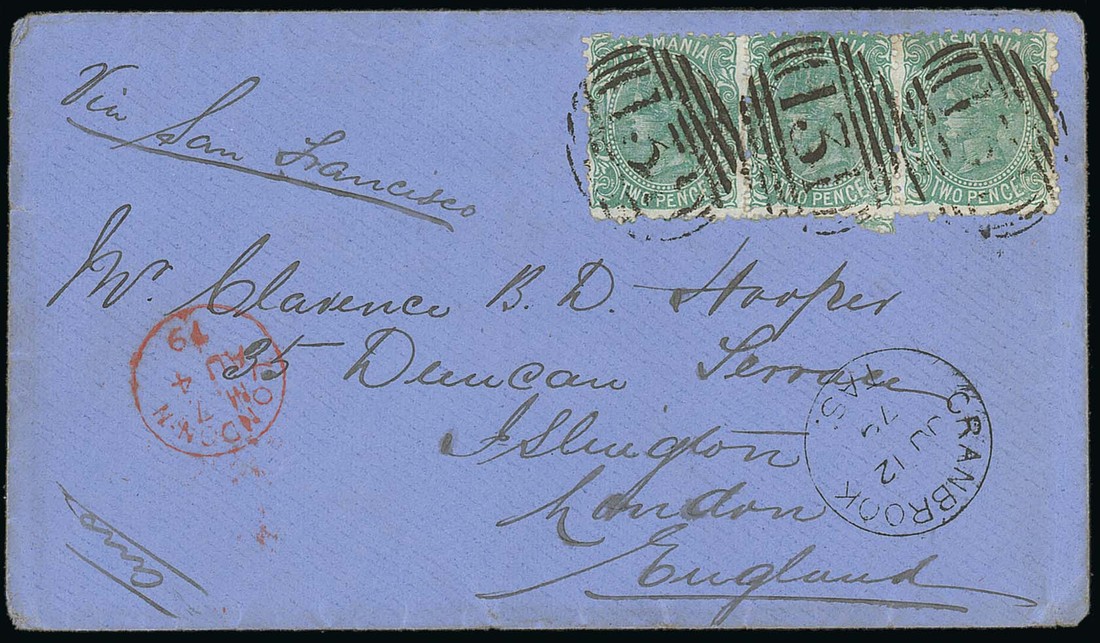 Via San Francisco
TASMANIA TASMANIA TASMANIA
TWO PENCE TWO PENCE TWO PENCE
Mr. Clarence B. D. Hooper
35 Duncan Terrace
Islington
London
England
LONDON·N
7
AU 4
CRANBROOK
JU 12
TAS.